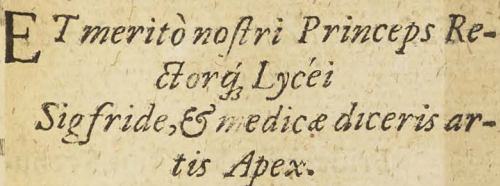 ET meritò noſtri Princeps Re-
ctorq́; Lycéi
Sigfride, & medicæ diceris ar-
tis Apex.